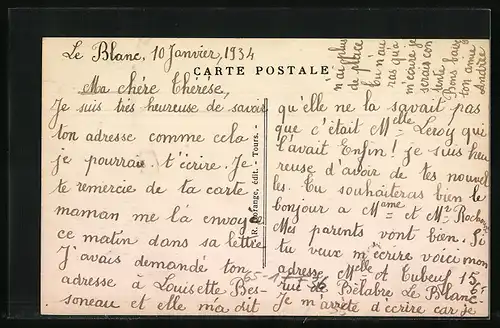 Le Blanc, 10 Janvier, 1934
CARTE POSTALE
Ma chère Thérèse,
Je suis très heureuse de savoir
ton adresse comme cela
je pourrai t'écrire. Je
te remercie de ta carte
maman me l'a envoyée
ce matin dans sa lettre
J'avais demandé ton
adresse à Louisette Bes-
soneau et elle m'a dit
qu'elle ne la savait pas
que c'était Melle Leroy qui
l'avait Enfin! je suis heu
reuse d'avoir de tes nouvel
les. Tu souhaiteras bien le
bonjour a Mame et Mr
Mes parents vont bien. Si
tu veux m'écrire voici mon
adresse Melle A Tubeuf 15,
rue de Bélabre Le Blanc
Je m'arrête d'écrire car je
n'ai plus
de place
Tu n'au
ras qu'a
m'écrire je
serais con
tente
Bons baisers
ton amie
Andrée
édit. - Tours.